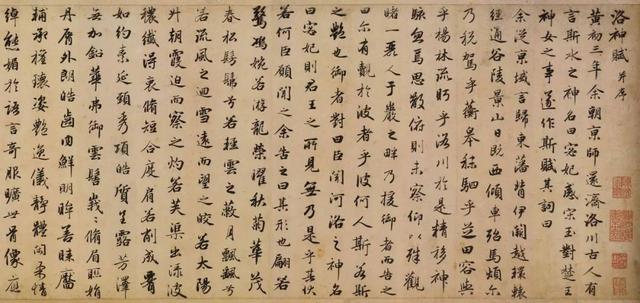 洛神賦 并序
黄初三年余朝京師還濟洛川古人有
言斯水之神名曰宓妃感宋玉對楚王
神女之事遂作斯賦其詞曰
余從京域言歸東藩背伊闕越轘轅
經通谷陵景山日既西傾車殆馬煩爾
乃税駕乎蘅皋秣駟乎芝田容與
乎楊林流眄乎洛川於是精移神
駭忽焉思散俯則未察仰以殊觀
睹一麗人于巖之畔乃援御者而告之
曰尔有覿於彼者乎彼何人斯若斯
之艷也御者對曰臣聞河洛之神名
曰宓妃則君王之所見無乃是乎其状
若何臣願聞之余告之曰其形也翩若
驚鴻婉若游龍榮曜秋菊華茂
春松髣髴兮若輕雲之蔽月飄飄兮
若流風之迴雪遠而望之皎若太陽
升朝霞迫而察之灼若芙蕖出渌波
穠纖得衷脩短合度肩若削成腰
如約素延頸秀項皓質呈露芳澤
無加鉛華弗御雲髻峩峩脩眉聯娟
丹脣外朗皓齒内鮮明眸善睞靨
輔承權瓌姿艷逸儀静體閑柔情
綽態媚於語言奇服曠世骨像應